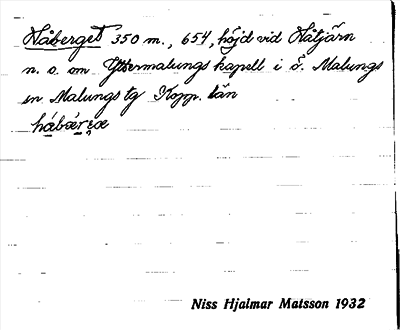 Håberget 350 m., 654, höjd vid Håtjärn
n. o. om Yttermalungs kapell i Ö. Malungs
sn Malungs tg Kopp. län
Niss Hjalmar Matsson 1932